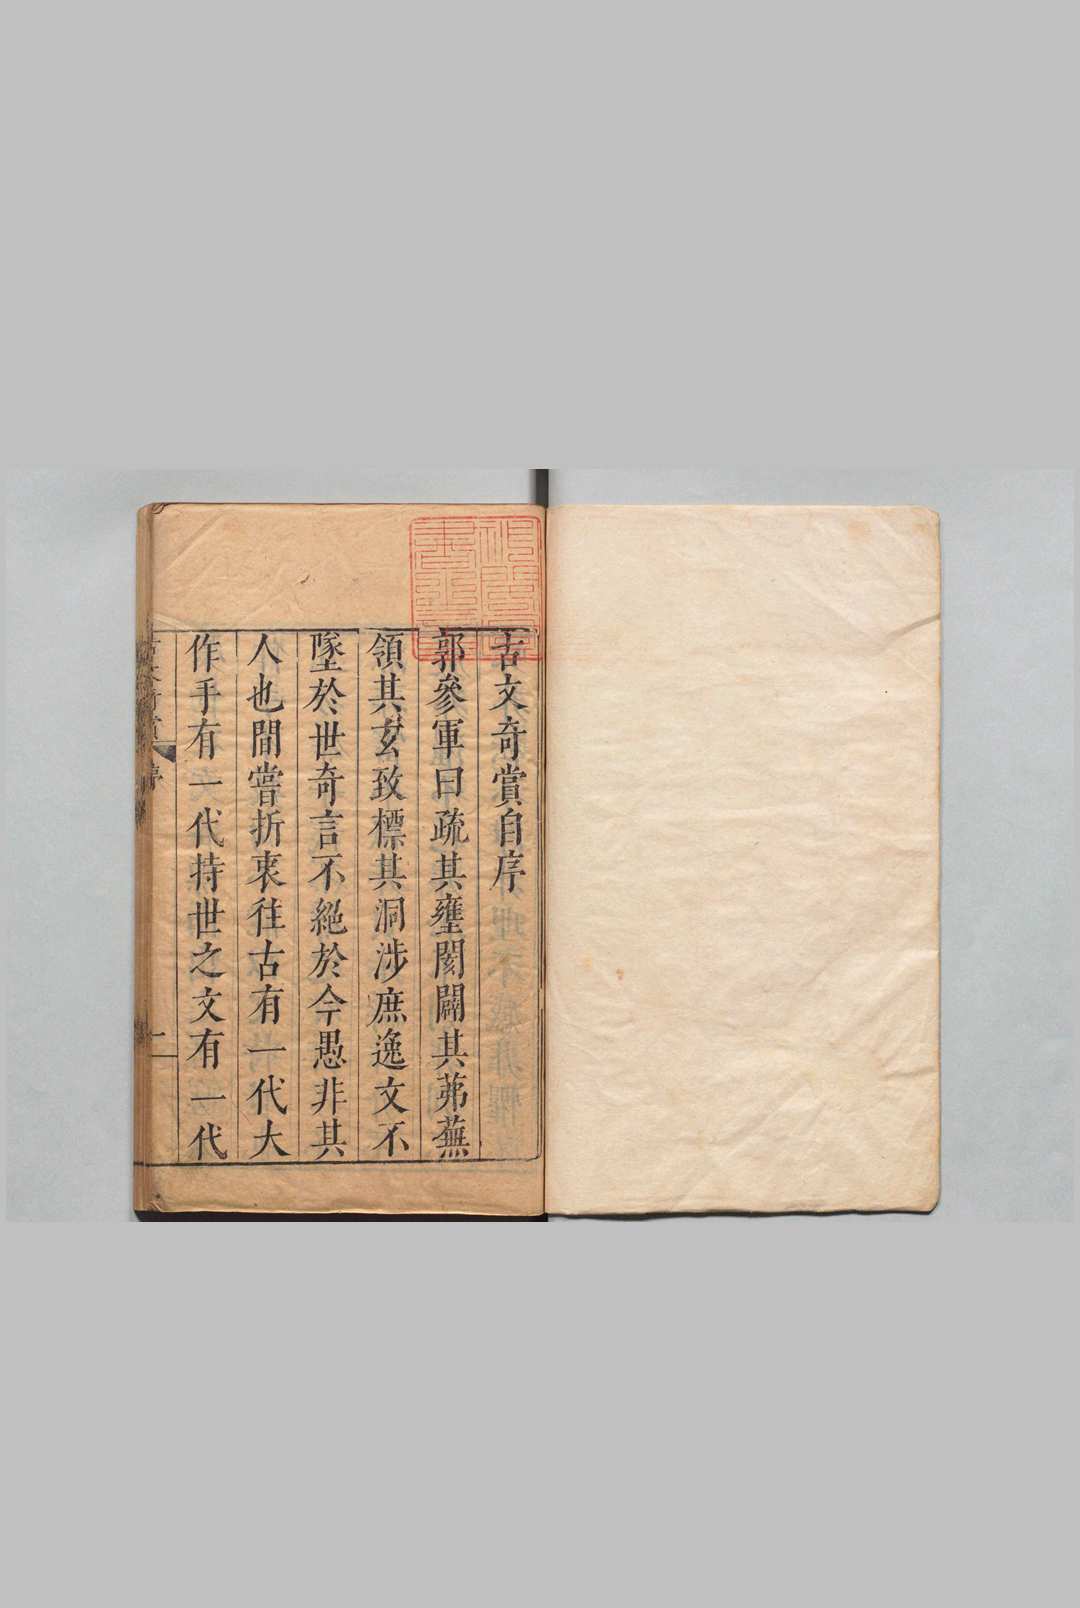 古文奇賞自序
郭參軍曰疏其壅閡闢其茀蕪
領其玄致標其洞涉庶逸文不
墜於世奇言不絕於今愚非其
人也間嘗折衷往古有一代大
作手有一代持世之文有一代
古文奇賞
序
一